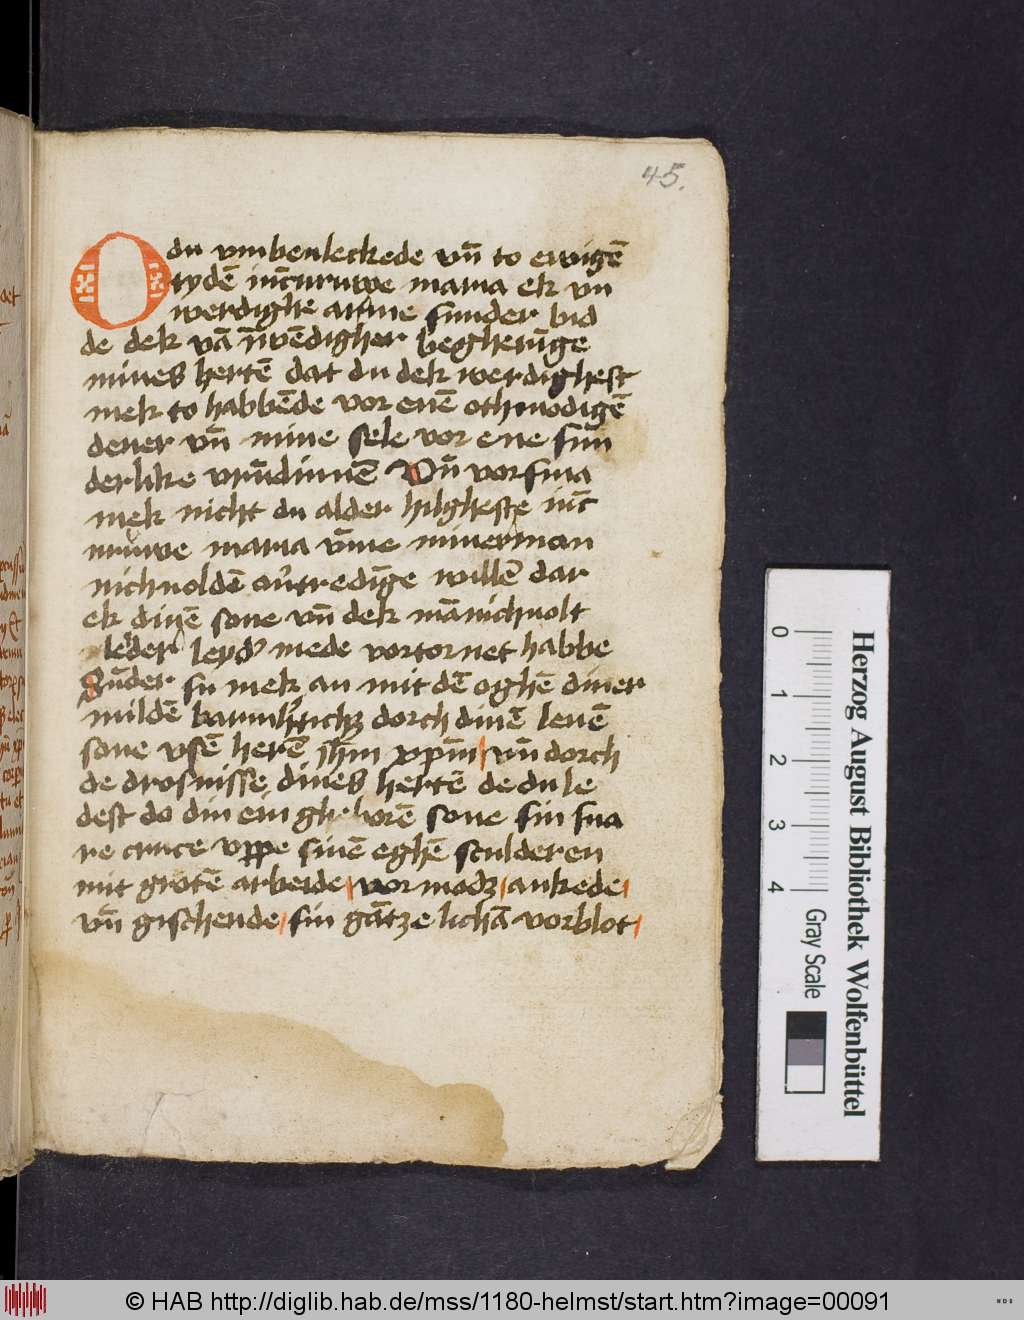 45.
O du vmbeuleckede vn̄ to ewigē
tydē iūcvruwe maria ek vn
werdighe arme sunder bid
de dek vā īwēdigher begherūge
mines hertē dat du dek werdighest
mek to habbēde vor enē othmodigē
dener vn̄ mine sele vor ene sun̄
derlike vrūdinnē Vn̄ vorsma
mek nicht du alder hilgheste iūc
vruwe maria vm̄e miner man
nichuoldē ouertredīge willē dar
ek dinē sone vn̄ dek mānichuolt
leder mede vortornet habbe
Sūder su mek an mit dē oghē diner
mildē barmhertich3 dorch dinē leuē
sone vsē herē ih̄m xp̄m vn̄ dorch
de drofnisse dines hertē de du le
dest do din ein gheborē sone sin sua
re cruce vppe sinē eghē sculderen
mit grotē arbeide vor mod3 ankede
vn̄ gischende sin gātze lichā vorblot
Herzog August Bibliothek Wolfenbüttel
0 1 2 3 4
Gray Scale
© HAB http://diglib.hab.de/mss/1180-helmst/start.htm?image=00091